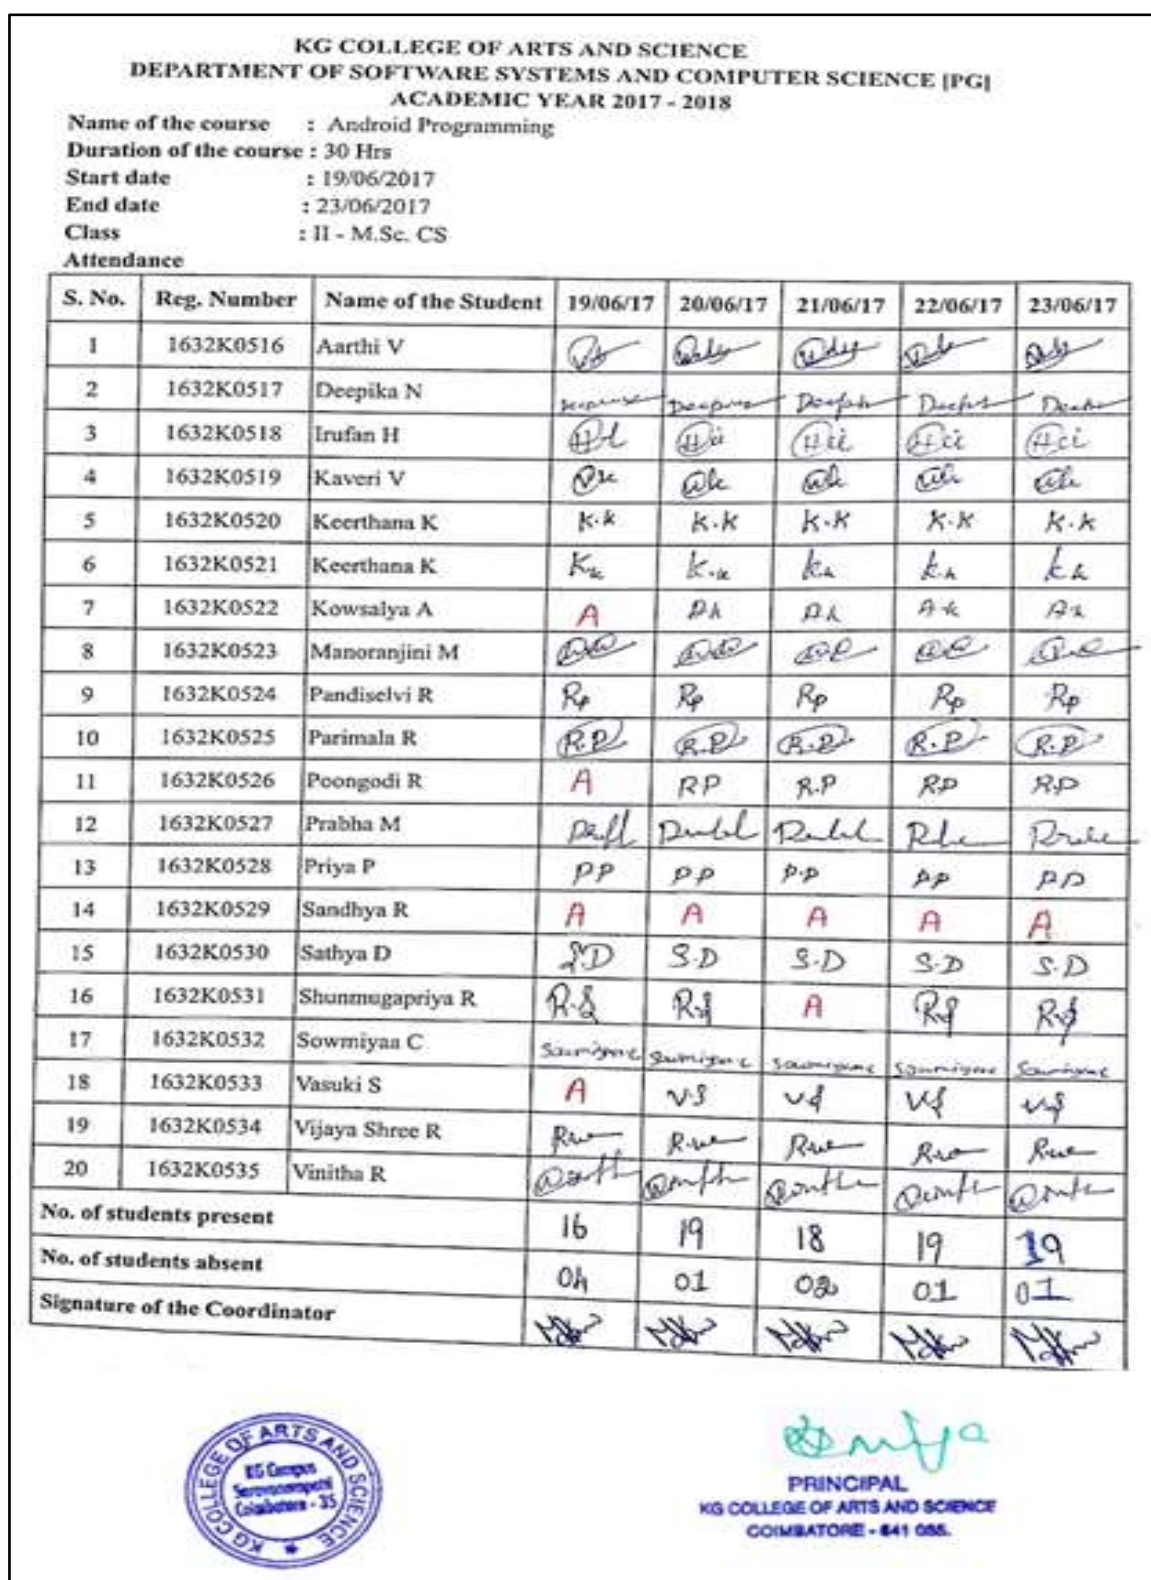 KG COLLEGE OF ARTS AND SCIENCE
DEPARTMENT OF SOFTWARE SYSTEMS AND COMPUTER SCIENCE [PG]
ACADEMIC YEAR 2017 - 2018
Name of the course : Android Programming
Duration of the course : 30 Hrs
Start date : 19/06/2017
End date : 23/06/2017
Class : II - M.Sc. CS
Attendance
S. No. Reg. Number Name of the Student 19/06/17 20/06/17 21/06/17 22/06/17 23/06/17
1 1632K0516 Aarthi V
2 1632K0517 Deepika N
3 1632K0518 Irufan H
4 1632K0519 Kaveri V
5 1632K0520 Keerthana K K.K K.K K.K K.K K.K
6 1632K0521 Keerthana K
7 1632K0522 Kowsalya A A
8 1632K0523 Manoranjini M
9 1632K0524 Pandiselvi R Rp Rp Rp Rp Rp
10 1632K0525 Parimala R R.P R.P R.P R.P R.P
11 1632K0526 Poongodi R A R.P R.P R.P R.P
12 1632K0527 Prabha M
13 1632K0528 Priya P PP PP P.P PP PP
14 1632K0529 Sandhya R A A A A A
15 1632K0530 Sathya D S.D S.D S.D S.D S.D
16 1632K0531 Shunmugapriya R R.S R.S A R.S R.S
17 1632K0532 Sowmiyaa C
18 1632K0533 Vasuki S A V.S V.S V.S V.S
19 1632K0534 Vijaya Shree R
20 1632K0535 Vinitha R
No. of students present 16 19 18 19 19
No. of students absent 04 01 02 01 01
Signature of the Coordinator
KG COLLEGE OF ARTS AND SCIENCE
KG Campus
Saravanampatti
Coimbatore - 35
PRINCIPAL
KG COLLEGE OF ARTS AND SCIENCE
COIMBATORE - 641 035.